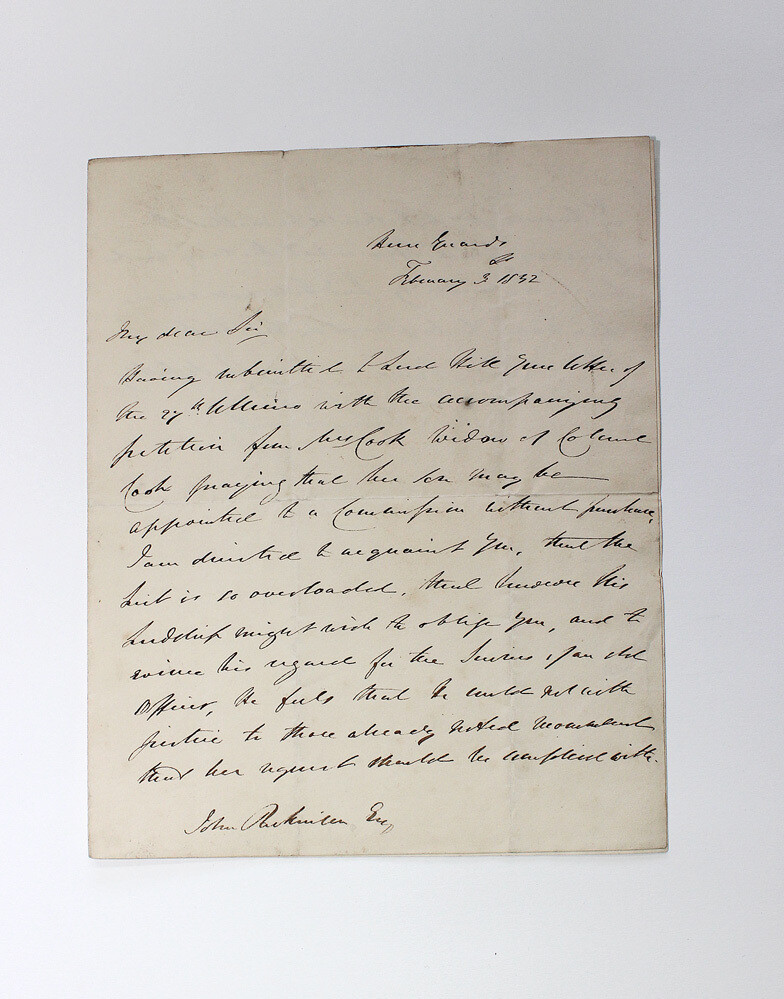 Horse Guards
February 3d 1832
My dear Sir
Having submitted to Lord Hill your letter of
the 27th Ultimo with the accompanying
petition from Mrs Cook Widow of Colonel
Cook praying that her son may be
appointed to a Commission without purchase,
I am directed to acquaint you, that the
List is so overloaded, that however His
Lordship might wish to oblige you, and to
evince his regard for the Services of an old
Officer, he feels that he could not with
justice to those already noted recommend
that her request should be complied with.
John Esq